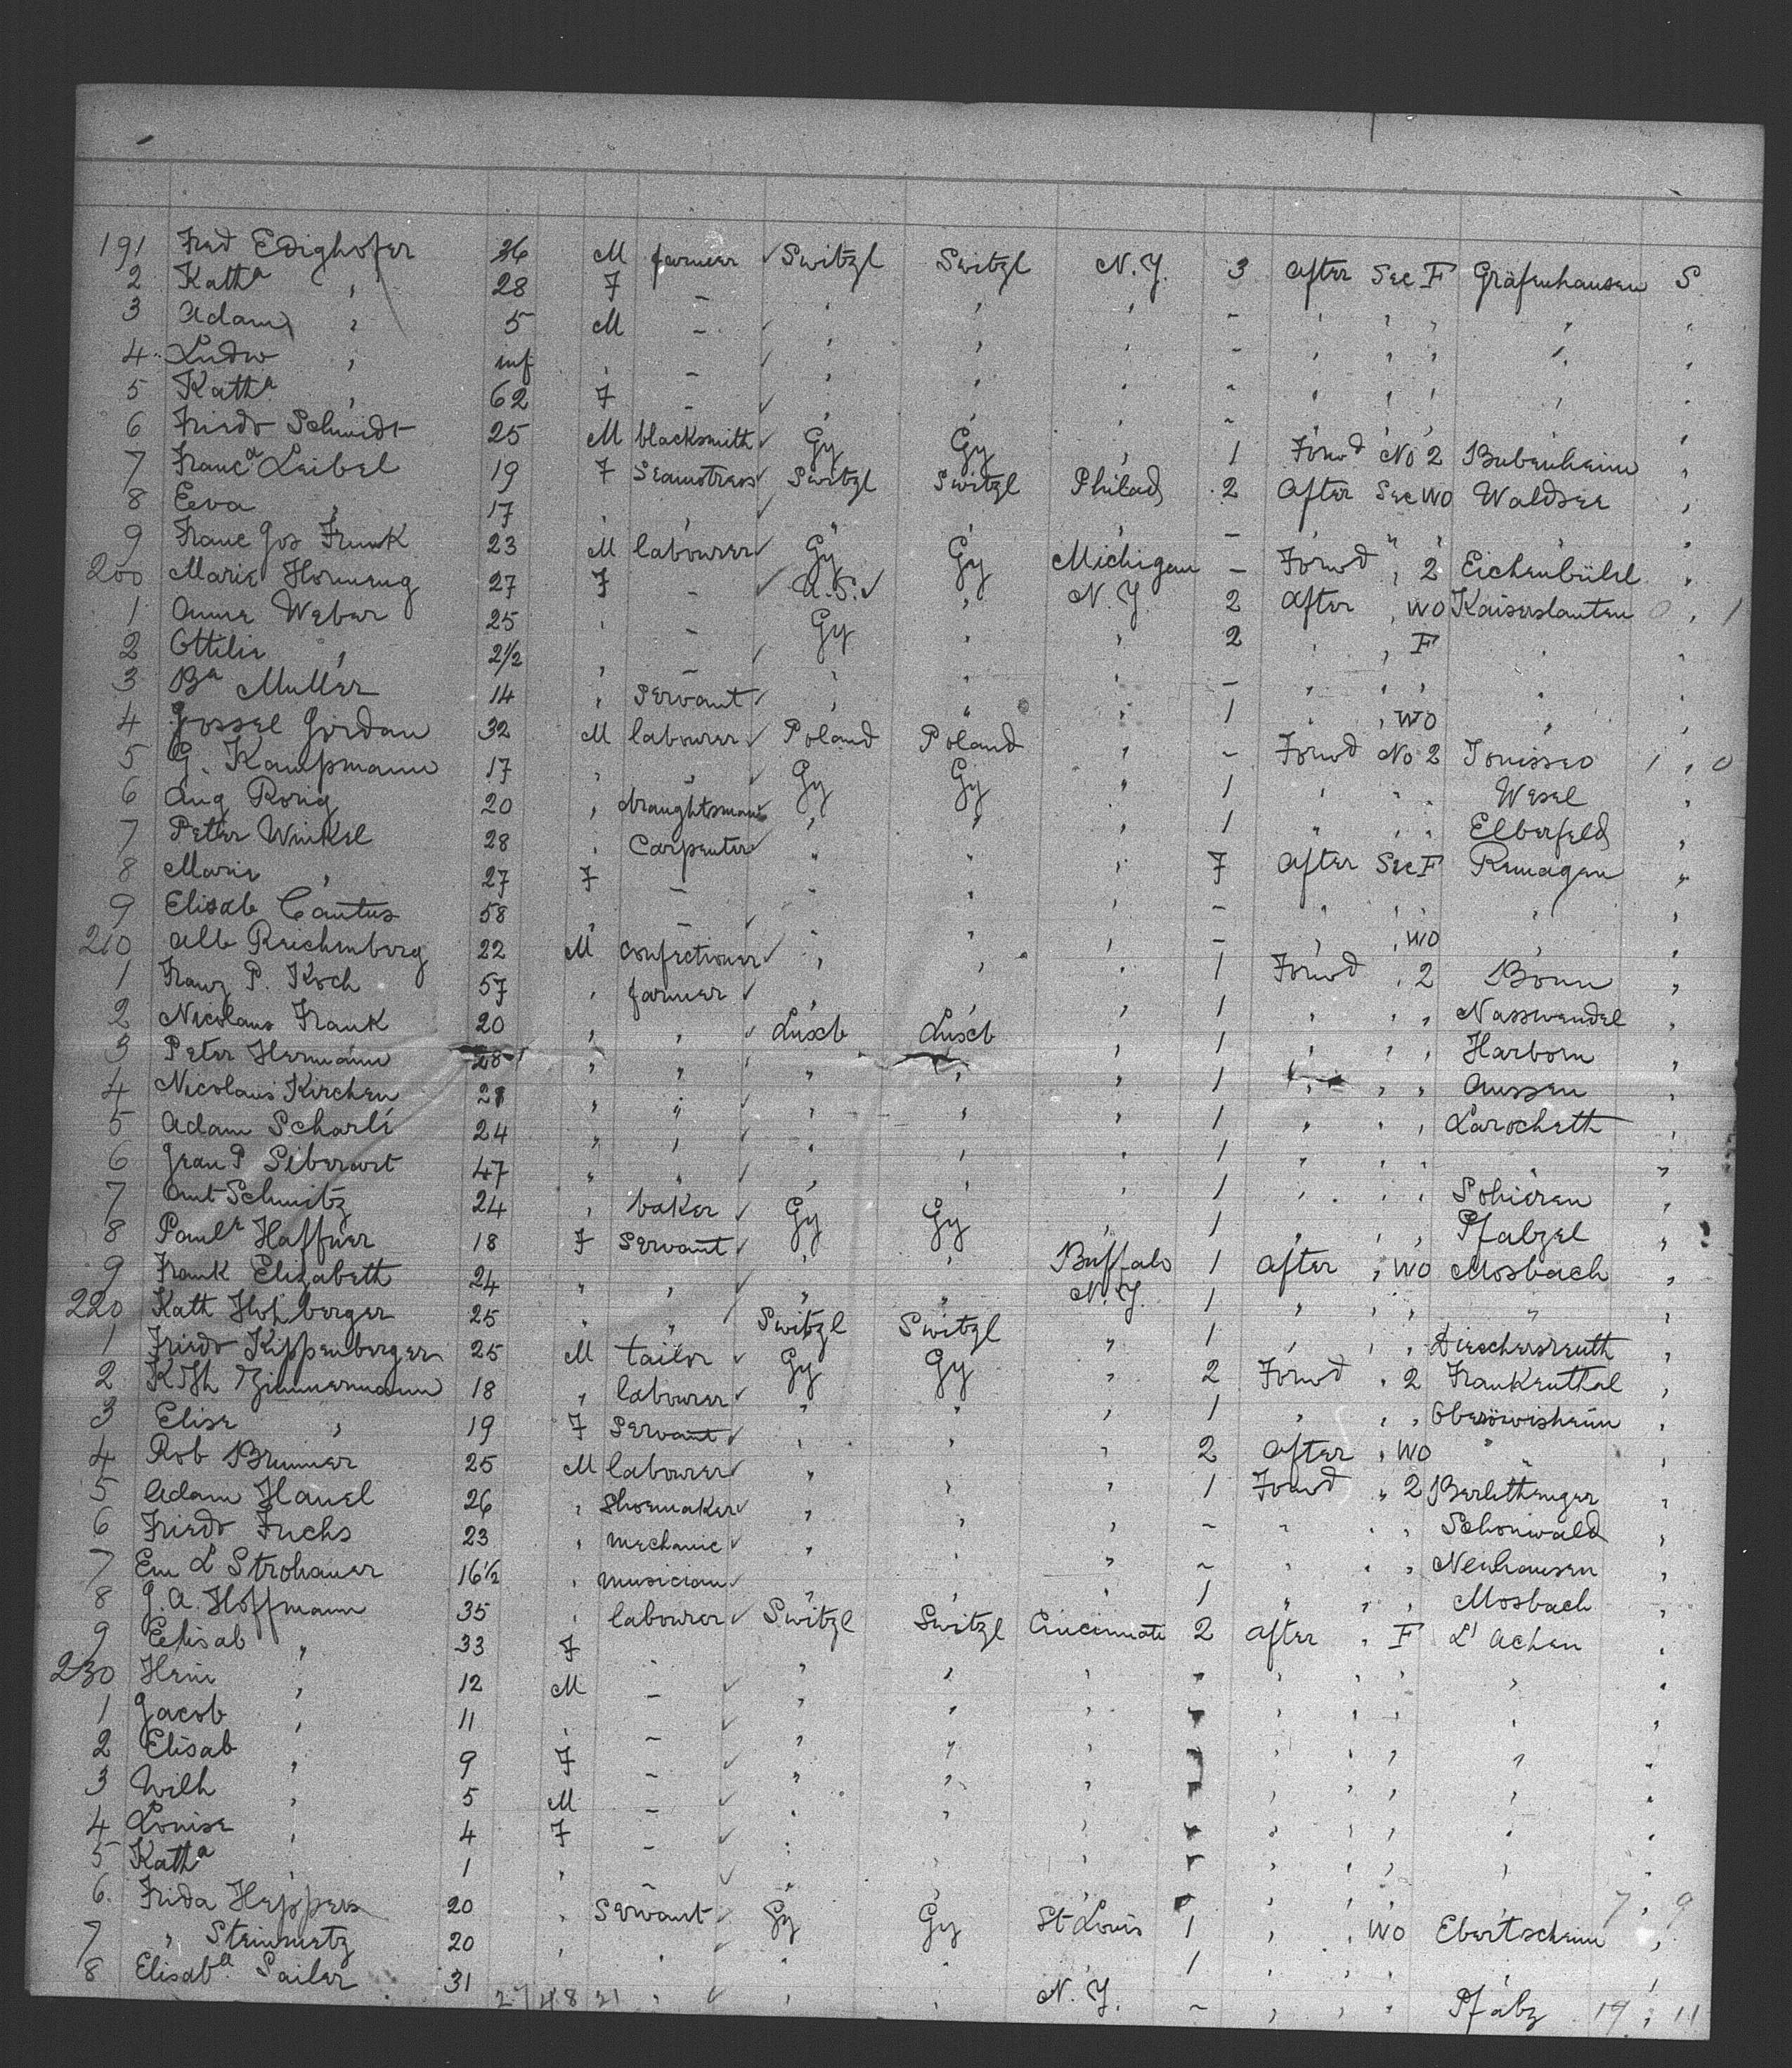 191 Fred Edighofer 36 M farmer ✓ Switzl Switzl N.Y. 3 After Sec F Gräfenhausen S
2 Kath^a " 28 F – " " " – " " " " "
3 Adam " 5 M – ✓ " " " – " " " " "
4 Ludw " inf " – ✓ " " " – " " " " "
5 Kath^a " 62 F – ✓ " " " – " " " " "
6 Friedr Schmidt 25 M blacksmith ✓ Gy Gy " 1 Forwd No 2 Bubenheim "
7 Franc^a Leibel 19 F Seamstress ✓ Switzl Switzl Philad 2 After Sec WO Waldser "
8 Eva " 17 " " " " " – " " " " "
9 Franc Jos Frunk 23 M labourer ✓ Gy Gy Michigan – Forwd " 2 Eichenbühl "
200 Marie Hornung 27 F – ✓ U.S. ✓ " N.Y. 2 After " WO Kaiserslautern 0 , 1
1 Anna Weber 25 " – Gy " " 2 " " F " "
2 Ottilie " 2½ " – ✓ " " " – " " " " "
3 B^a Muller 14 " Servant ✓ " " " 1 " " WO " "
4 Jossel Jordan 32 M labourer ✓ Poland Poland " – Forwd No 2 1 , 0
5 G. Kampmann 17 " " ✓ Gy Gy " 1 " " " Wesel "
6 Aug Rorig 20 " draughtsman ✓ " " " 1 " " " Elberfeld "
7 Peter Winkel 28 " Carpenter ✓ " " " 7 After Sec F Remagen "
8 Marie " 27 F – " " " – " " " " "
9 Elisab Cantus 58 " – ✓ " " " – " " WO " "
210 Alb Reichenberg 22 M Confectioner ✓ " " " 1 Forwd " 2 Bonn "
1 Franz P. Koch 57 " farmer ✓ " " " 1 " " " Nasswendel "
2 Nicolaus Frank 20 " " ✓ Luxb Luxb " 1 " " " Harborn "
3 Peter Hermann 28 " " " " " " 1 " " " Aussen "
4 Nicolaus Kirchen 28 " " ✓ " " " 1 " " " Larocheth "
5 Adam Scharlé 24 " " ✓ " " " 1 " " " " "
6 Jean P Siberart 47 " " ✓ " " " 1 " " " "
7 Ant Schmitz 24 " baker ✓ Gy Gy " 1 " " " Pfalzel "
8 Paul^e Haffner 18 F Servant ✓ " " Buffalo 1 After " WO Mosbach "
9 Frank Elizabeth 24 " " ✓ " " N.Y. 1 " " " " "
220 Kath Hohberger 25 " " Switzl Switzl " 1 " " " "
1 Friedr Kippenberger 25 M tailor ✓ Gy Gy " 2 Forwd " 2 Frankenthal "
2 Zimmermann 18 " labourer ✓ " " " 1 " " " "
3 Elise " 19 F Servant ✓ " " " 2 After " WO " "
4 Rob Brunner 25 M labourer ✓ " " " 1 Forwd " 2 "
5 Adam Hauel 26 " Shoemaker ✓ " " " – " " " Schonwald "
6 Friedr Fuchs 23 " mechanic ✓ " " " – " " " Neuhausen "
7 Em L Strohauer 16½ " musician ✓ " " " 1 " " " Mosbach "
8 G. A. Hoffmann 35 " labourer ✓ Switzl Switzl Cincinnati 2 After " F L'Achen "
9 Elisab " 33 F – " " " " " " " "
230 Hein " 12 M – ✓ " " " " " " " "
1 Jacob " 11 " – ✓ " " " " " " " "
2 Elisab " 9 F – ✓ " " " " " " " "
3 Wilh " 5 M – ✓ " " " " " " " "
4 Louise " 4 F – ✓ " " " " " " " "
5 Kath^a " 1 " – ✓ " " " " " " " 7 , 9
6 Frida Heppes 20 " Servant ✓ Gy Gy St Louis 1 " " WO Ebertscheim "
7 " Steinmetz 20 " " ✓ " " " 1 " " " " "
8 Elisab^a Sailer 31 " " ✓ " " N.Y. – " " " Pfalz 19 , 11